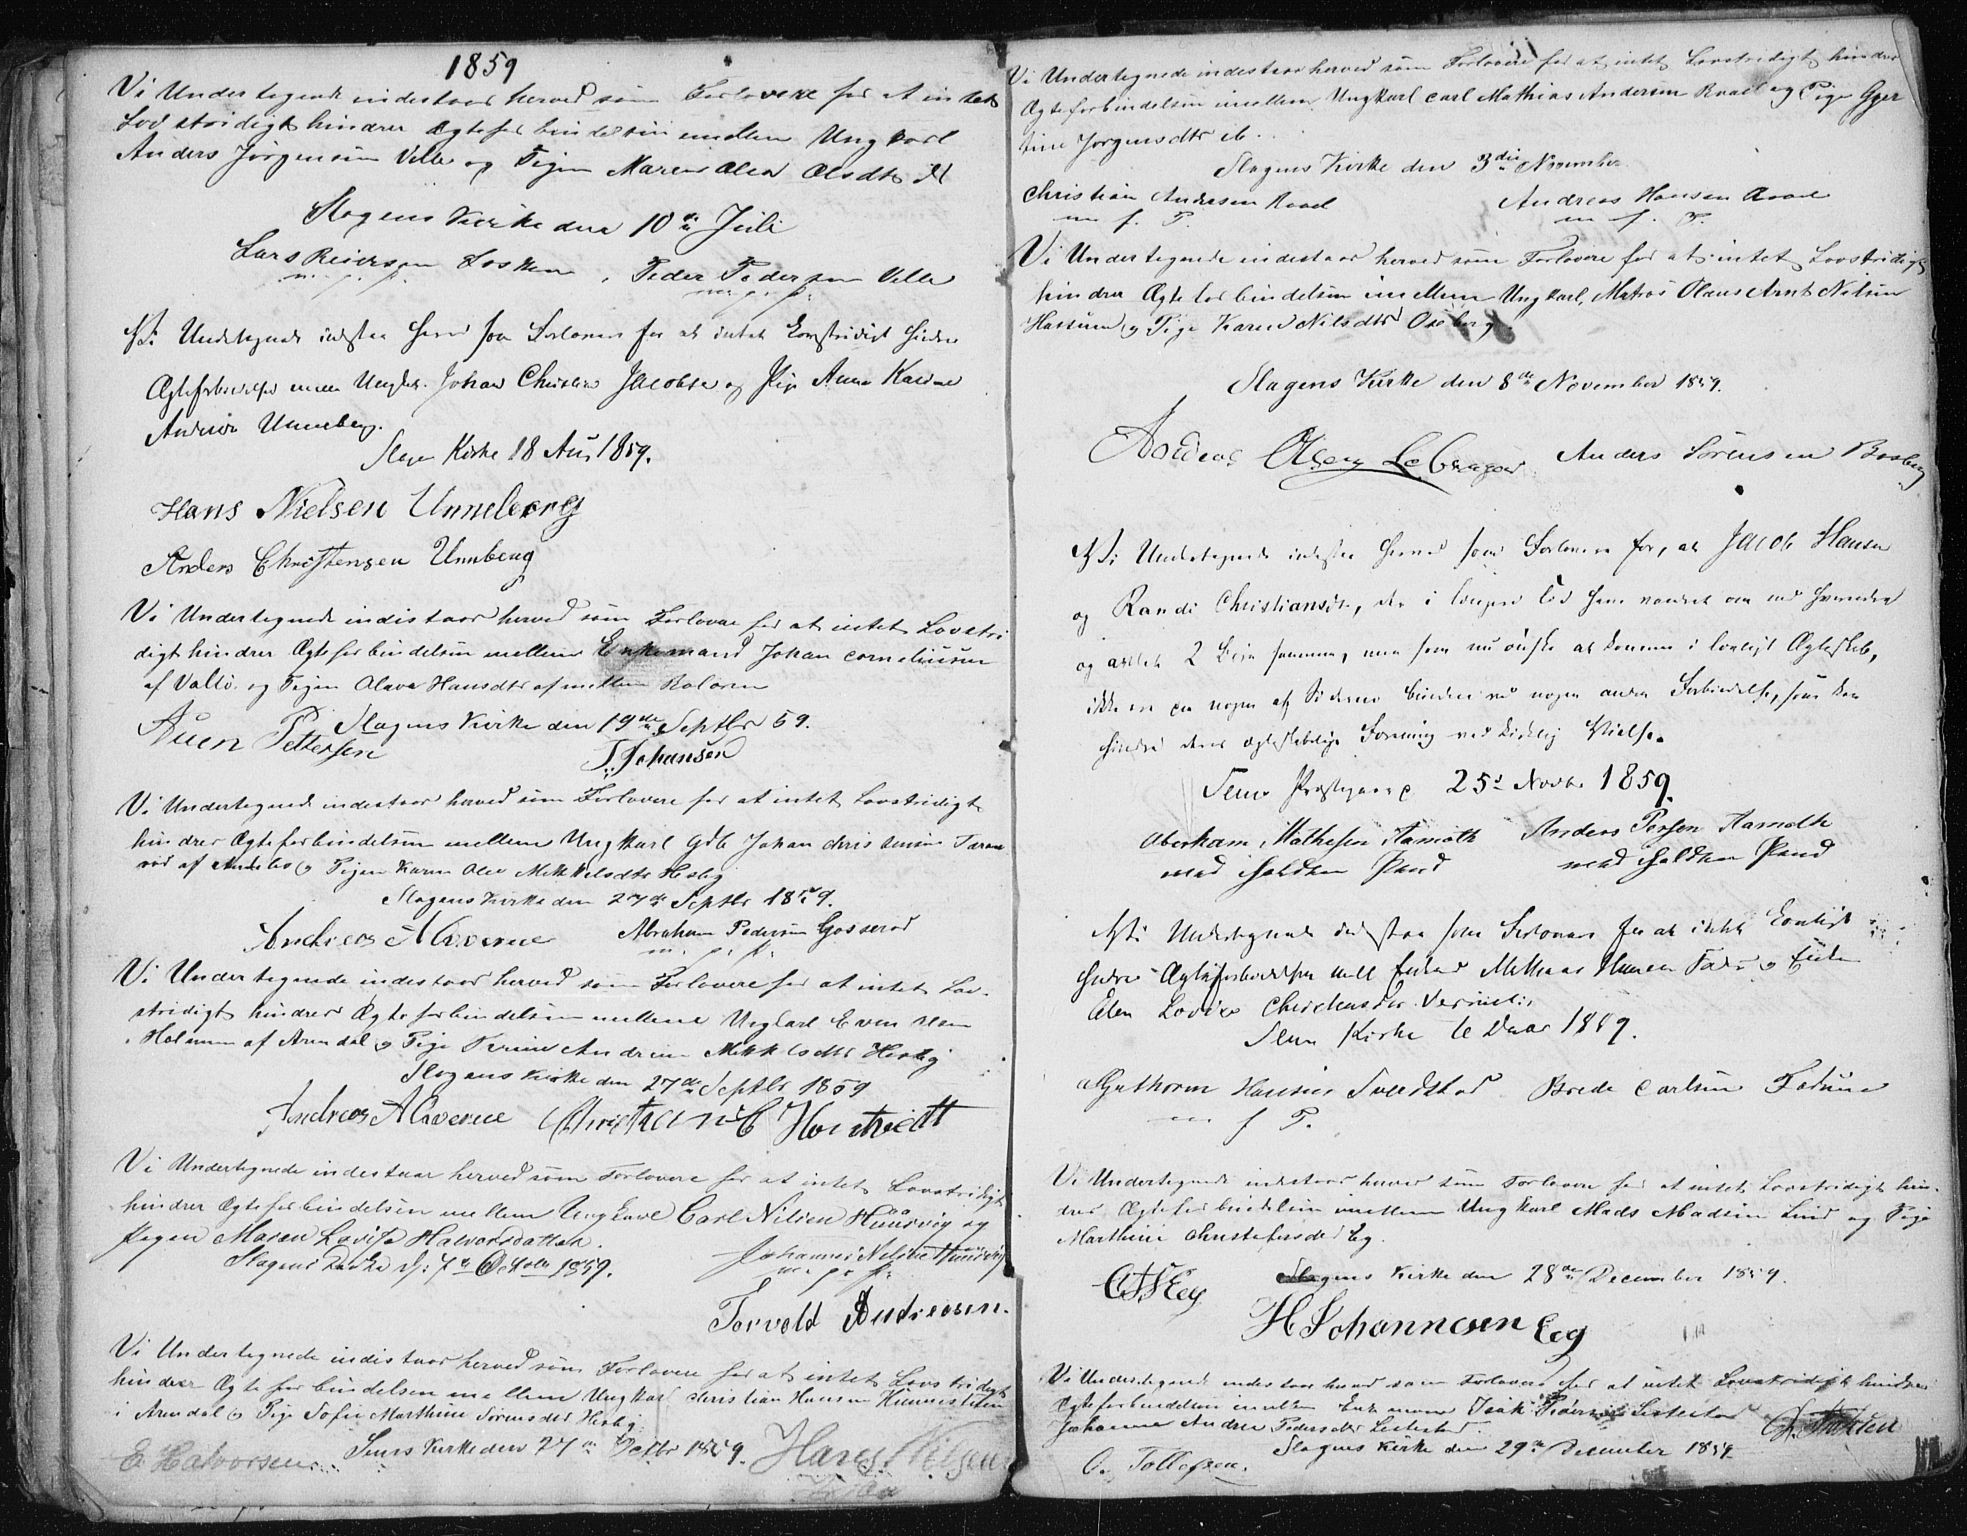 1859
Vi Undertegnede indestaar herved som Forlovere for at intet
Lovstridigt hindrer Ægteforbindelsen mellem Ungkarl
Anders Jørgensen Velle og Pigen Maren Olea Olsdtr
Slagens Kirke den 10de Juli
Lars Reiersen Peder Pedersen Velle
m. f. P. m. p. P.
Vi Undertegnede indestaa herved som Forlovere for at intet Lovstridigt hindrer
Ægteforbindelse mellem Ungk. Johan Christian Jacobsen og Pige Anne Karine
Andersen Unneberg.
Slagen Kirke 18 Aug 1859.
Hans Nielsen Unneberg
Anders Christensen Unnbeng
Vi Undertegnede indestaar herved som Forlovere for at intet Lovstri
digt hindrer Ægteforbindelsen mellem Enkemand Johan Corneliusen
af Vallø og Pigen Olava Hansdtr af mellem
Slagens Kirke den 19de Septbr 59.
Auen Pettersen
J. Johansen
Vi Undertegnede indestaar herved som Forlovere for at intet Lovstridigt
hindrer Ægteforbindelsen mellem Ungkarl Johan
af og Pigen Karen Olea Mikkelsdtr Hesby
Slagens Kirke den 27de Septbr 1859.
Abraham Pedersen Gosserød
Andreas m. p. P.
Vi Undertegnede indestaar herved som Forlovere for at intet Lov-
stridigt hindrer Ægteforbindelsen mellem Ungkarl Even
Holmen af Arendal og Pige Andrine Mikkelsdtr Hesby
Slagens Kirke den 27de Septbr 1859
Andreas Christian C
Vi Undertegnede indestaar herved som Forlovere for at intet Lovstridigt
hindrer Ægteforbindelsen mellem Ungkarl Carl Nilsen Huusvig og
Pigen Maren Lovise Halvorsdatter.
Slagens Kirke d: 7de October 1859. Johannes Nilsen Huusvig
m. p. P.
Torvald Andreasen.
Vi Undertegnede indestaar herved som Forlovere for at intet Lovstridigt
hindrer Ægteforbindelsen mellem Ungkarl Christian Hansen
i Arendal og Pige Sofie Marthine Sørensdtr Hesby
Sems Kirke den 27de Octbr 1859.
E Halvorsen Hans Nilsen
Vi Undertegnede indestaar herved som Forlovere for at intet Lovstridigt hindrer
Ægteforbindelsen imellem Ungkarl Carl Mathias Andersen Raael og Pige Gjer
tine Jørgensdtr ib.
Slagens Kirke den 3die November
Christian Andersen Raael Andreas Hansen Raael
m f. P. m f. P.
Vi Undertegnede indestaar herved som Forlovere for at intet Lovstridigt
hindrer Ægteforbindelsen imellem Ungkarl, Matros Olaus Arnt Nilsen
Hassum og Pige Karen Nilsdtr Oseberg
Slagens Kirke den 8de November 1859.
Andreas Olsen Anders Sørensen Basberg
Vi Undertegnede indestaa herved som Forlovere for, at Jacob Hansen
og Randi Christiansdtr, der i længere Tid have vandret om med hverandre
og avlet 2 Børn sammen, men som nu ønske at komme i lovligt Ægteskab,
ikke er paa nogen af Siderne bundne ved nogen anden Forbindelse, som kan
hindre deres ægteskabelige Forening ved kirkelig Vielse.
Sems Præstegaard 25d Novbr 1859.
Aberham Mathesen Aamoth Anders Persen Aamoth
med holden Pend med holden Pend
Vi Undertegnede indestaa som Forlovere for at intet Lovligt
hindrer Ægteforbindelsen mell Enkem Mathias Hansen og Enke
Elen Lovise Christensdtr
Sem Kirke 6 Decbr 1859.
Guthorm Hansen Brede Carlsen
m f P.
Vi Undertegnede indestaar herved som Forlovere for at intet Lovstridigt hin-
drer Ægteforbindelsen imellem Ungkarl Mads Madsen Lind og Pige
Marthine Christofersdtr Eeg.
Slagens Kirke den 28de December 1859.
H Johannesen Eeg
Vi Undertegnede indestaar herved som Forlovere for at intet Lovstridigt hindrer
Ægteforbindelsen imellem Enkemand Isak Pedersen
Johanne Andrea Pedersdtr
Slagens Kirke den 29de December 1859
O. Tollefsen.